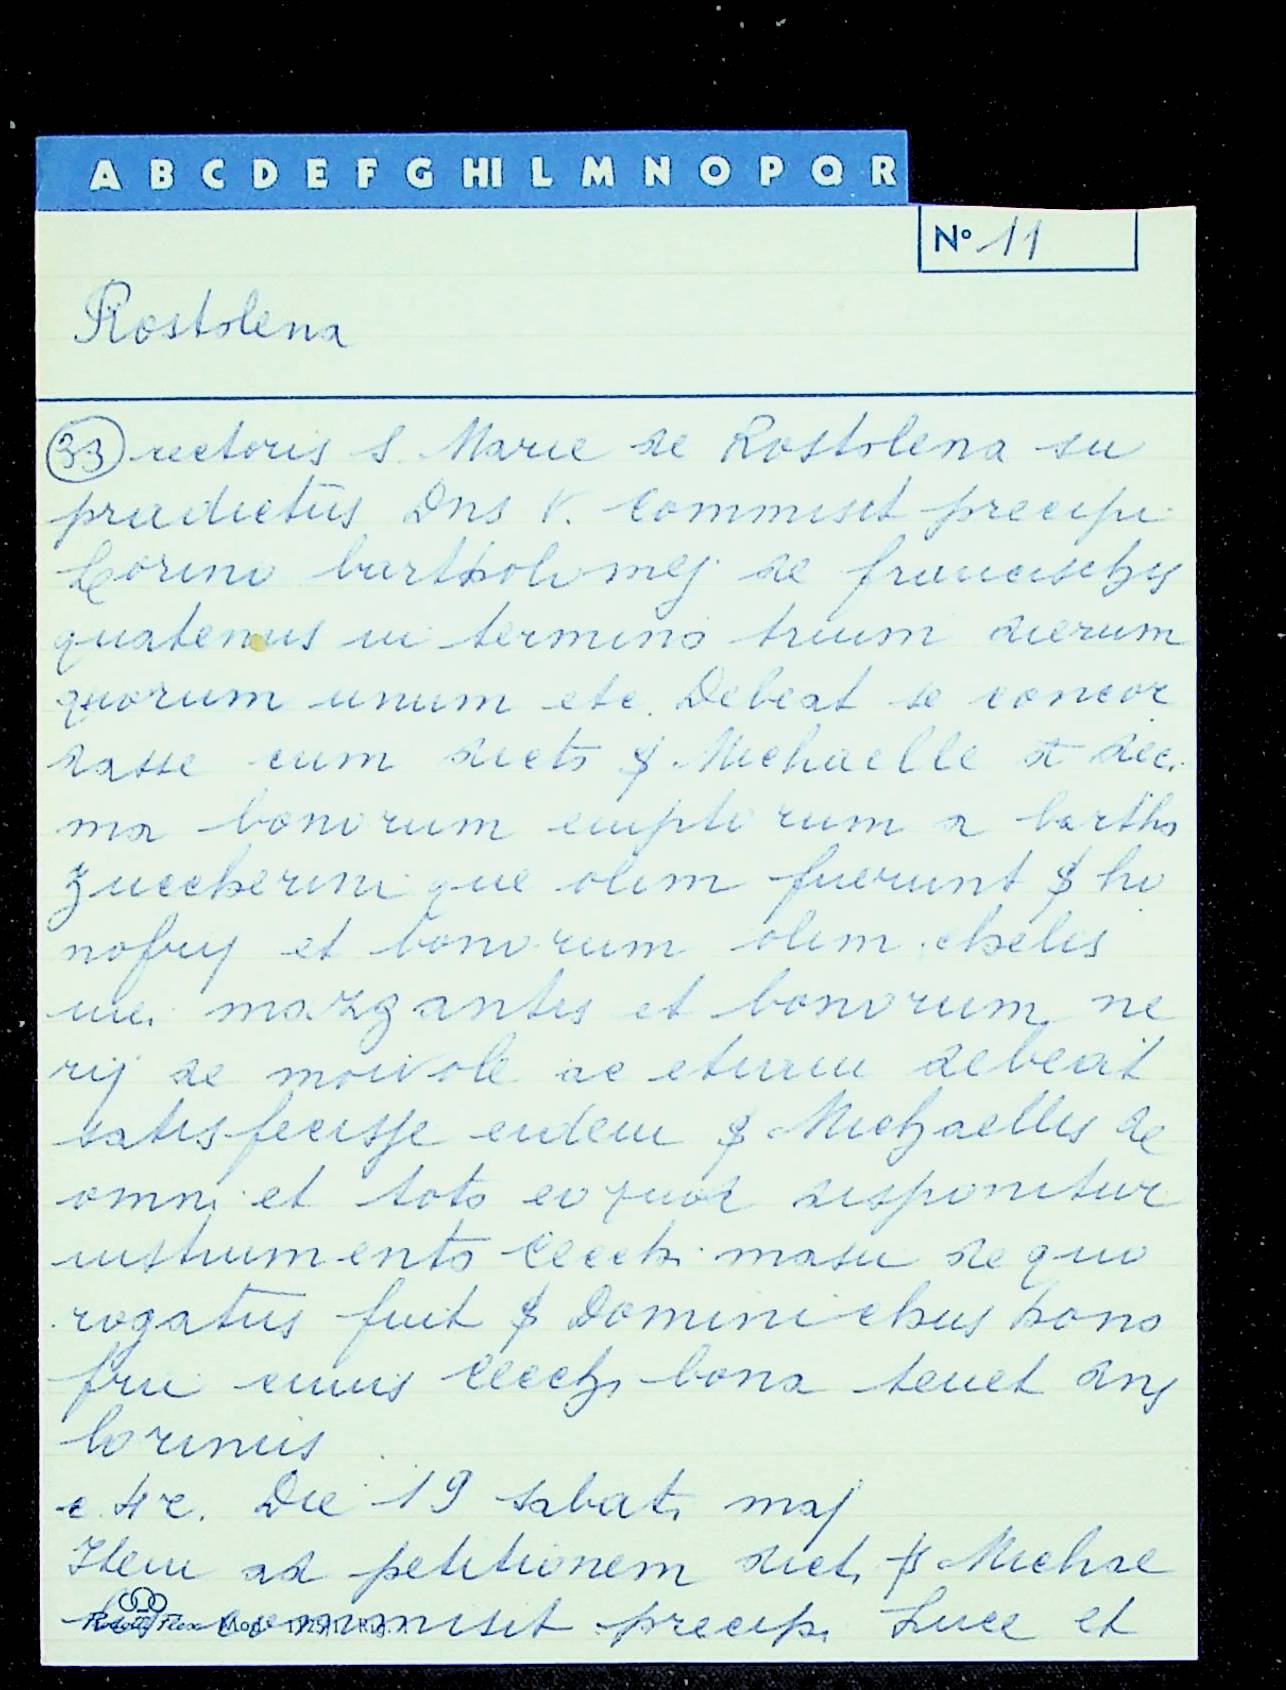 A B C D E F G HI L M N O P Q R
N° 11
Rostolena
33 rectoris S. Marie de Rostolena su
predictus Dns V. Commisit precipi
Lorino bartholomej de francischys
quatenus in termino trium dierum
quorum unum etc. Debeat se concor
dasse cum dicto Michaelle
ma bonorum emptorum a bartho
zuccherini que olim fuerunt ho
nofrij et bonorum olim chelis
mazzantis et bonorum ne
rij de moivole ac etiam debeat
satisfecisse eidem Michaellis de
omni et toto eo quod disponitur
instrumento Cecchi masii de quo
rogatus fuit Dominichus hono
frii cuius Cecchi bona tenet
lorinus
c. 42. Die 19 sabati maj
Item ad petitionem dicti Michae
commisit precipi Luce et